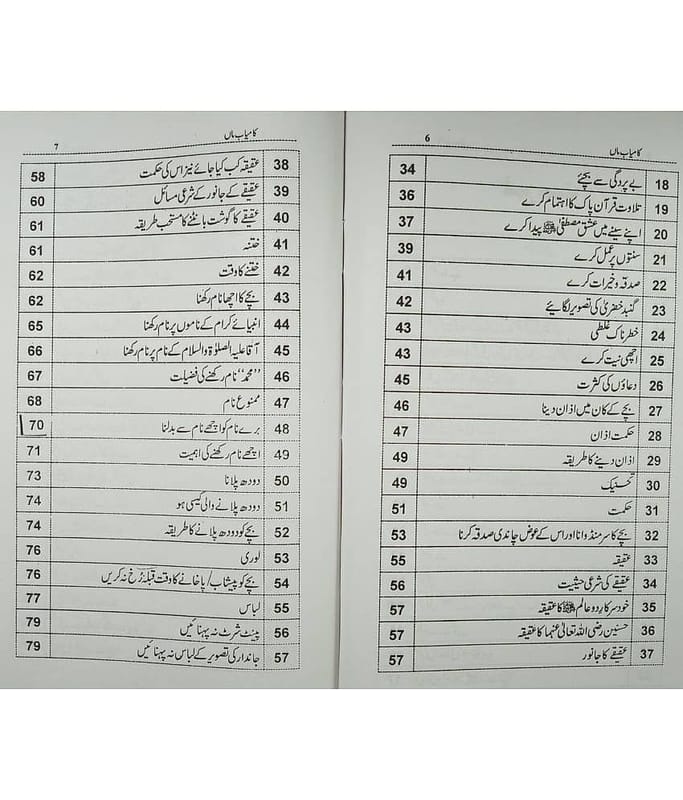 کامیاب ماں 6
18 بے پردگی سے بچئے 34
19 تلاوت قرآن پاک کا اہتمام کرے 36
20 اپنے سینے میں عشق مصطفیٰ ﷺ پیدا کرے 37
21 سنتوں پر عمل کرے 39
22 صدقہ و خیرات کرے 41
23 گنبد خضریٰ کی تصویر لگائیے 42
24 خطرناک غلطی 43
25 اچھی نیت کرے 43
26 دعاؤں کی کثرت 45
27 بچے کے کان میں اذان دینا 46
28 حکمت اذان 47
29 اذان دینے کا طریقہ 49
30 تحسنیک 49
31 حکمت 51
32 بچے کا سر منڈوانا اور اس کے عوض چاندی صدقہ کرنا 53
33 عقیقہ 55
34 عقیقے کی شرعی حیثیت 56
35 خود سرکار دو عالم ﷺ کا عقیقہ 57
36 حسنین رضی اللہ تعالیٰ عنہما کا عقیقہ 57
37 عقیقے کا جانور 57
کامیاب ماں 7
38 عقیقہ کب کیا جائے نیز اس کی حکمت 58
39 عقیقے کے جانور کے شرعی مسائل 60
40 عقیقے کا گوشت بانٹنے کا مستحب طریقہ 61
41 ختنہ 61
42 ختنے کا وقت 62
43 بچے کا اچھا نام رکھنا 62
44 انبیائے کرام کے ناموں پر نام رکھنا 65
45 آقا علیہ الصلوٰۃ والسلام کے نام پر نام رکھنا 66
46 ”محمد“ نام رکھنے کی فضیلت 67
47 ممنوع نام 68
48 برے نام کو اچھے نام سے بدلنا 70
49 اچھے نام رکھنے کی اہمیت 71
50 دودھ پلانا 73
51 دودھ پلانے والی کیسی ہو 74
52 بچے کو دودھ پلانے کا طریقہ 74
53 لوری 76
54 بچے کو پیشاب/پاخانے کا وقت قبلہ رُخ نہ کریں 76
55 لباس 77
56 پینٹ شرٹ نہ پہنائیں 79
57 جاندار کی تصویر کے لباس نہ پہنائیں 79